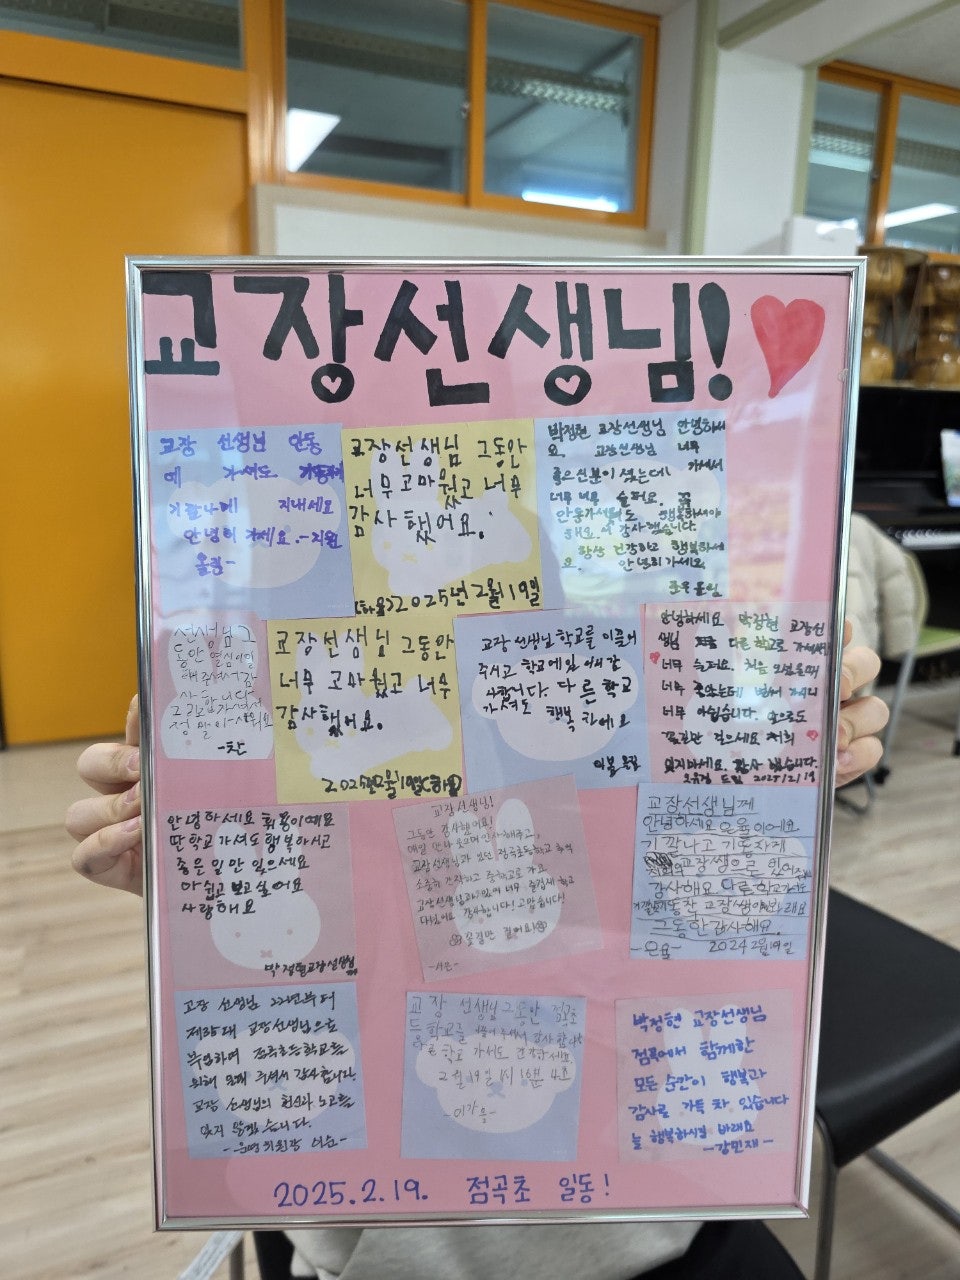 교장선생님!
교장 선생님 안동
에 가셔도
지내세요
안녕히 가세요. -지원
올림-
교장선생님 그동안
너무 고마웠고 너무
감사했어요.
2025년2월19일
박정현 교장선생님 안녕하세
요. 교장선생님 너무
좋으신분이 셨는데 가셔서
너무 너무 슬퍼요. 꼭
안동가셔서도 행복하셔야
해요. 감사했습니다.
항상 건강하고 행복하세
요. 안녕히가세요.
올림
선생님 그
동안 열심히일
해주셔서감
사합니다
-찬
교장선생님 그동안
너무 고마웠고 너무
감사했어요.
2025년2월19일
교장 선생님 학교를 이끌어
주시고 학교에
사합니다. 다른 학교
가셔도 행복 하세요
올림
안녕하세요 박정현 교장선
생님 다른 학교로 가셔서
너무 슬퍼요. 처음 오셨을때
너무 좋았는데 벌써 가시니
너무 아쉽습니다. 앞으로도
꽃길만 걸으세요 저희
잊지마세요. 감사했습니다.
드림 2025/2/19
안녕하세요
딴 학교 가셔도 행복하시고
좋은 일만 있으세요
아쉽고 보고싶어요
사랑해요
박정현교장선생님
교장선생님!
그동안 감사했어요!
매일 만나
교장선생님과 보낸 점곡초등학교 추억
소중히 간직하고 중학교로 가요
교장선생님과 있어 너무 즐겁게 학교
다녔어요 감사합니다! 고맙습니다!
꽃길만 걸어요!
교장선생님께
안녕하세요 은율이에요
교장쌤으로 있어
감사해요 다른 학교가셔도
그동안감사해요.
-은율- 2024 2월19일
교장 선생님 22년부터
교장선생님으로
부임하여 점곡초등학교를
위해 주셔서 감사합니다.
교장 선생님의 헌신과 노고를
잊지 않겠습니다.
-운영위원장
교장 선생님 그동안 점곡초
등학교를 이끌어 주셔서 감사합니다
다른 학교 가서도 건강하세요.
2월 19일 1시 16분 42초
-이가을-
박정현 교장선생님
점곡에서 함께한
모든 순간이 행복과
감사로 가득 차 있습니다
늘 행복하시길 바래요
-강민재-
2025.2.19. 점곡초 일동!